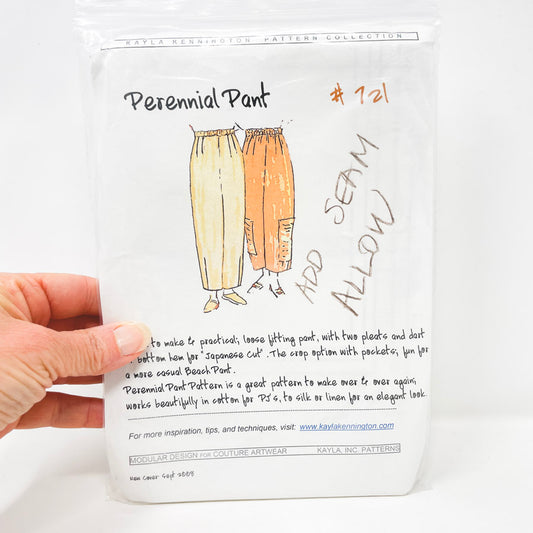 KAYLA KENNINGTON PATTERN COLLECTION
Perennial Pant
# 721
ADD SEAM ALLOW
to make & practical; loose fitting pant, with two pleats and dart
bottom hem for "Japanese Cut". The crop option with pockets; fun for
a more casual Beach Pant.
Perennial Pant Pattern is a great pattern to make over & over again;
works beautifully in cotton for PJ's, to silk or linen for an elegant look.
For more inspiration, tips, and techniques, visit: www.kaylakennington.com
MODULAR DESIGN FOR COUTURE ARTWEAR KAYLA, INC. PATTERNS
New Cover Sept 2008